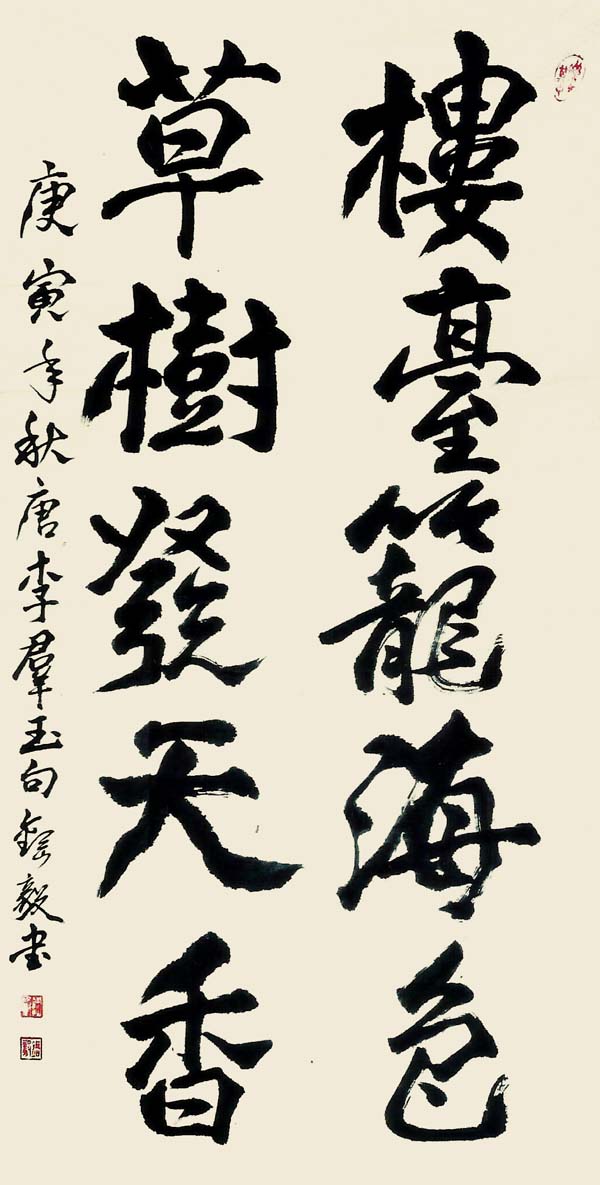 樓臺籠海色
草樹發天香
庚寅年秋唐李群玉句毅书